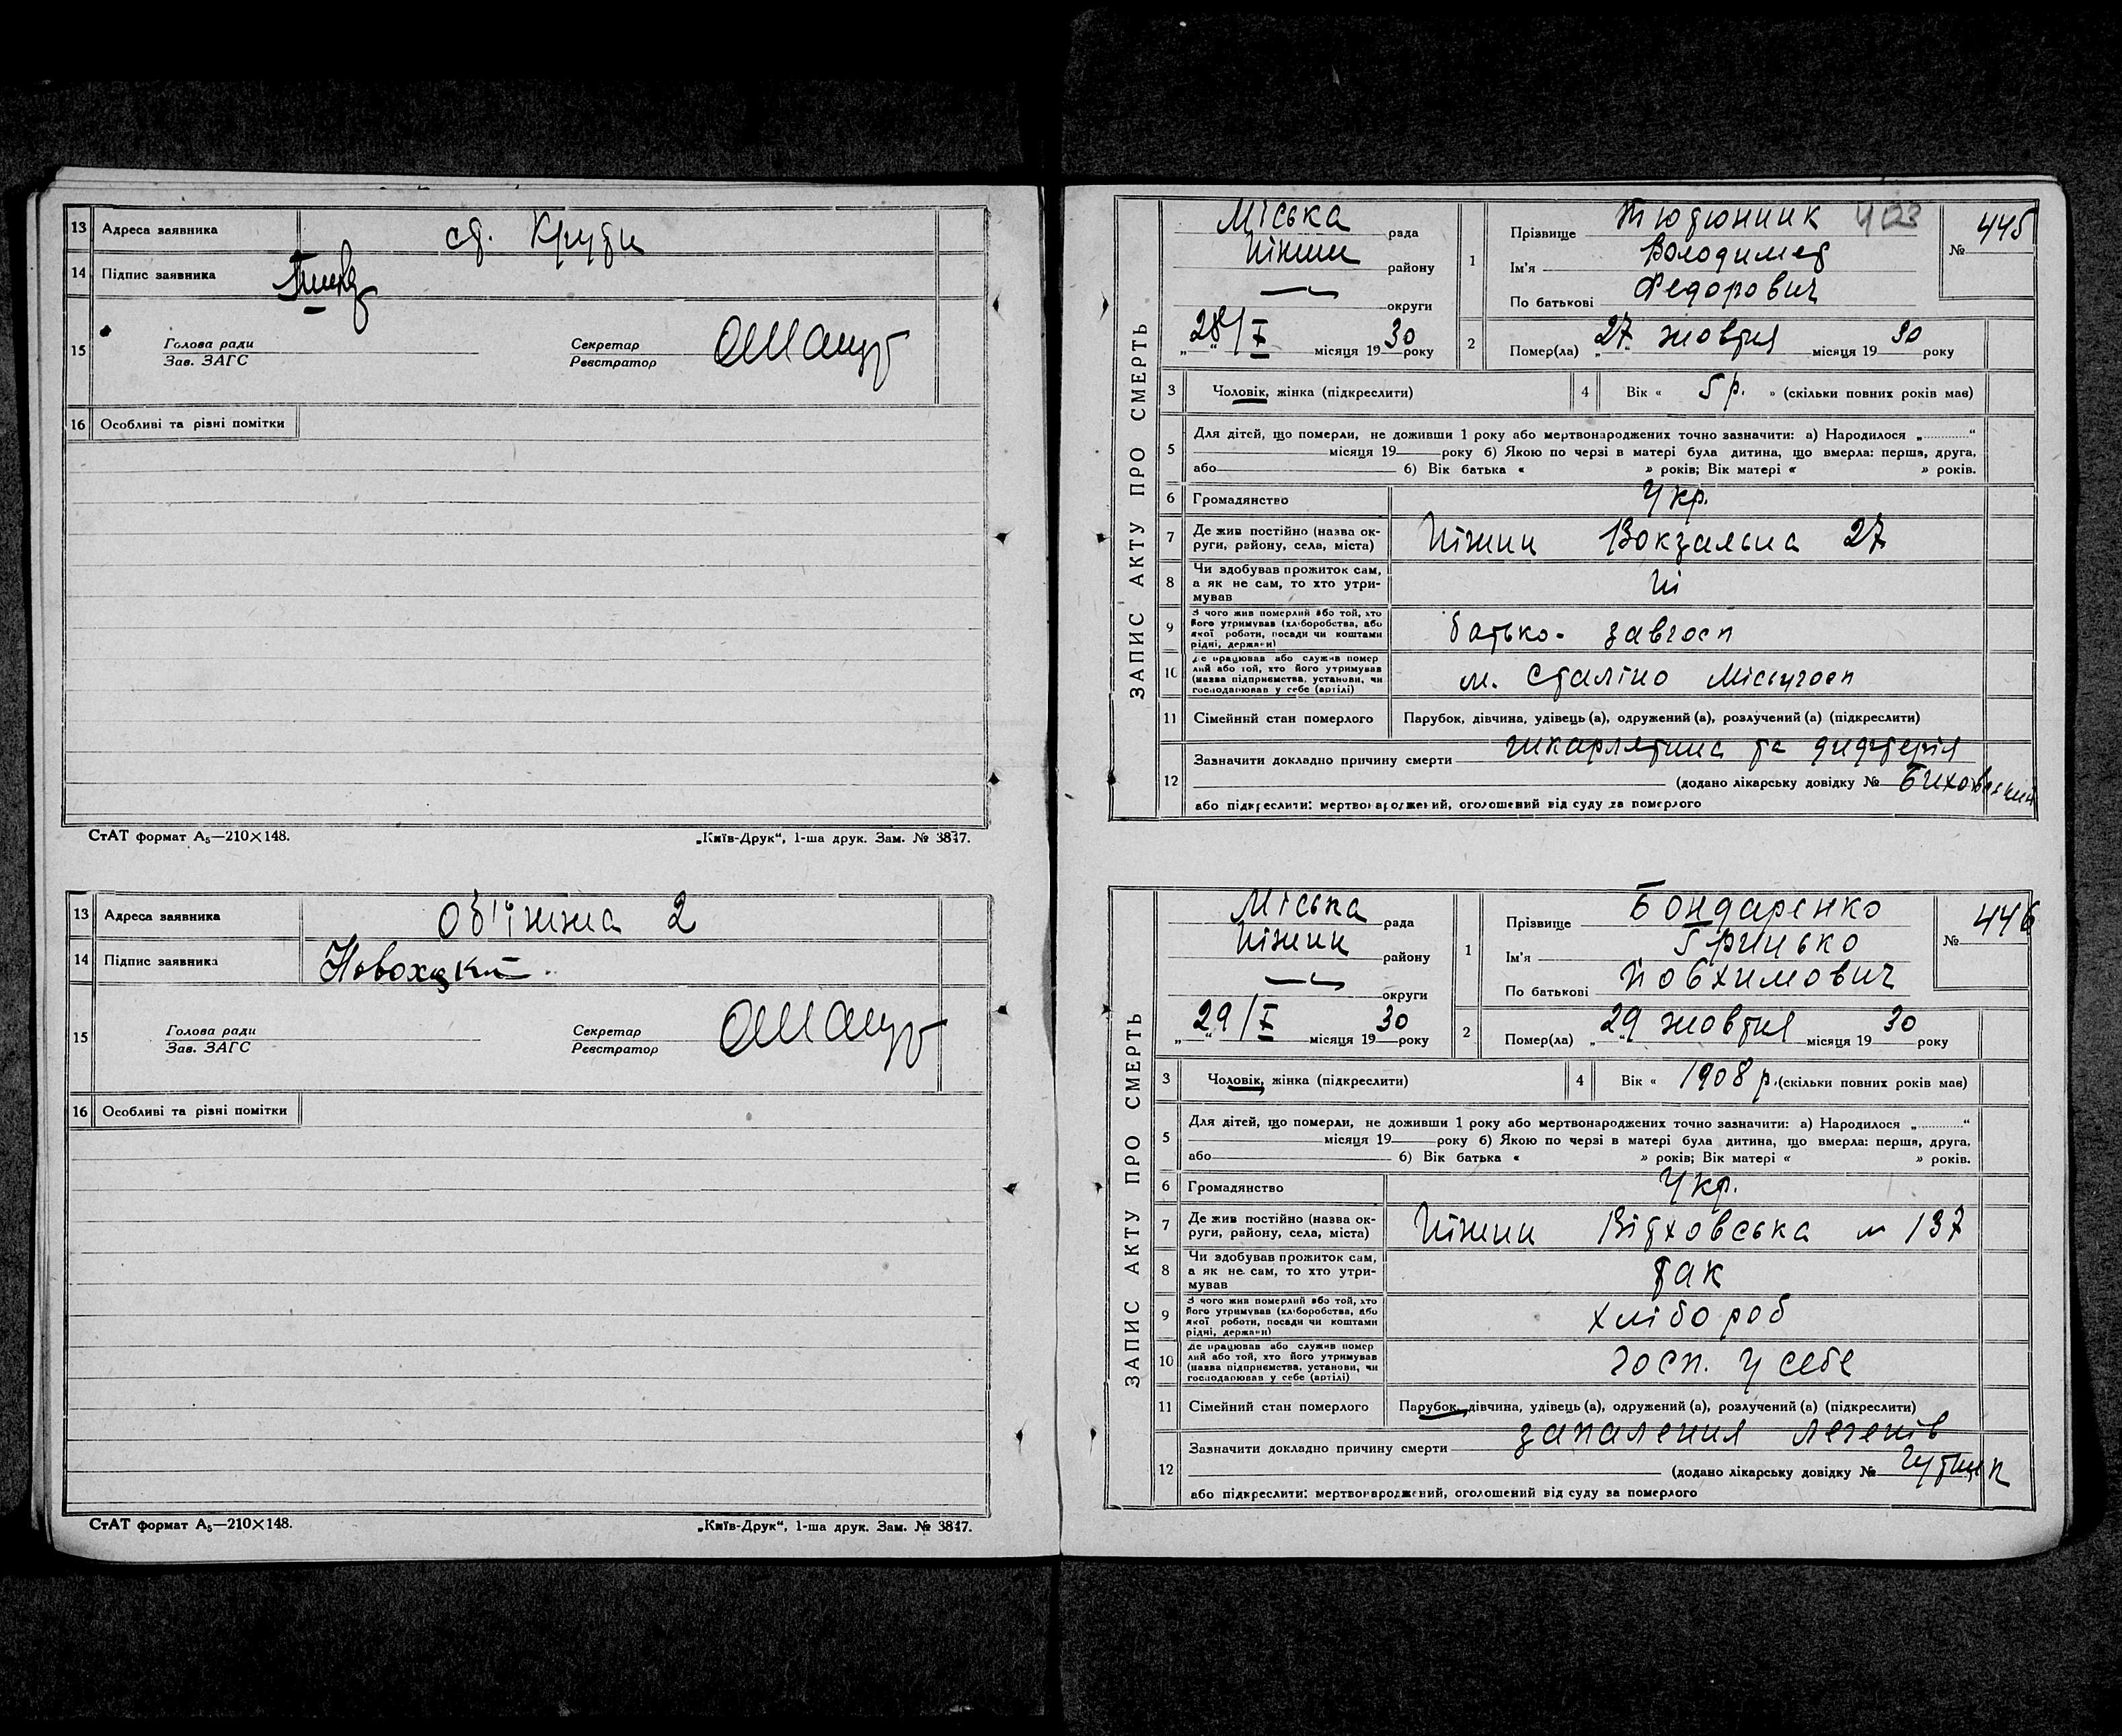 13 Адреса заявника ст. Крути
14 Підпис заявника
15 Голова ради Секретар
Зав. ЗАГС Реєстратор
16 Особливі та різні помітки
СтАТ формат А5—210×148. „Київ-Друк“, 1-ша друк. Зам. № 3847.
13 Адреса заявника Об'їжжа 2
14 Підпис заявника
15 Голова ради Секретар
Зав. ЗАГС Реєстратор
16 Особливі та різні помітки
СтАТ формат А5—210×148. „Київ-Друк“, 1-ша друк. Зам. № 3847.
ЗАПИС АКТУ ПРО СМЕРТЬ
Міська рада
Ніжин району
округи
„28“/X місяця 1930 року
1 Прізвище Тютюнник 403
Ім'я Володимер
По батькові Федорович
№ 445
2 Помер(ла) „27“ жовтня місяця 1930 року
3 Чоловік, жінка (підкреслити) 4 Вік « 5 р. » (скільки повних років має)
5 Для дітей, що померли, не доживши 1 року або мертвонароджених точно зазначити: а) Народилося „............“
місяця 19 року б) Якою по черзі в матері була дитина, що вмерла: перша, друга,
або б) Вік батька « » років; Вік матері « » років.
6 Громадянство Укр.
7 Де жив постійно (назва ок-
руги, району, села, міста) Ніжин Вокзальна 27
8 Чи здобував прожиток сам,
а як не сам, то хто утри-
мував Ні
9 З чого жив померлий або той, хто
його утримував (хліборобства, або
якої роботи, посади чи коштами
рідні, держави) батько- завгосп
10 Де працював або служив помер
лий або той, хто його утримував
(назва підприємства, установи, чи
господарював у себе (артілі) м. Сталіно
11 Сімейний стан померлого Парубок, дівчина, удівець (а), одружений (а), розлучений (а) (підкреслити)
12 Зазначити докладно причину смерти шкарлятина та дифтерія
(додано лікарську довідку № Биховський
або підкреслити: мертвонароджений, оголошений від суду за померлого
ЗАПИС АКТУ ПРО СМЕРТЬ
Міська рада
Ніжин району
округи
„29“/X місяця 1930 року
1 Прізвище Бондаренко
Ім'я Грицько
По батькові Йовхимович
№ 446
2 Помер(ла) „29“ жовтня місяця 1930 року
3 Чоловік, жінка (підкреслити) 4 Вік « 1908 р. (скільки повних років має)
5 Для дітей, що померли, не доживши 1 року або мертвонароджених точно зазначити: а) Народилося „............“
місяця 19 року б) Якою по черзі в матері була дитина, що вмерла: перша, друга,
або б) Вік батька « » років; Вік матері « » років.
6 Громадянство Укр.
7 Де жив постійно (назва ок-
руги, району, села, міста) Ніжин 137
8 Чи здобував прожиток сам,
а як не сам, то хто утри-
мував так
9 З чого жив померлий або той, хто
його утримував (хліборобства, або
якої роботи, посади чи коштами
рідні, держави) хлібороб
10 Де працював або служив помер
лий або той, хто його утримував
(назва підприємства, установи, чи
господарював у себе (артілі) госп. у себе
11 Сімейний стан померлого Парубок, дівчина, удівець (а), одружений (а), розлучений (а) (підкреслити)
12 Зазначити докладно причину смерти запалення легенів
(додано лікарську довідку №
або підкреслити: мертвонароджений, оголошений від суду за померлого